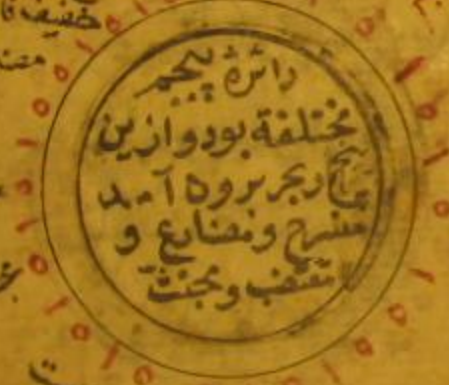 خفیف فا
دائرهٔ پنجم
مختلفة بود و ازین
چهار بحر برون آمد
منسرح و مضارع و
مقتضب و مجتث